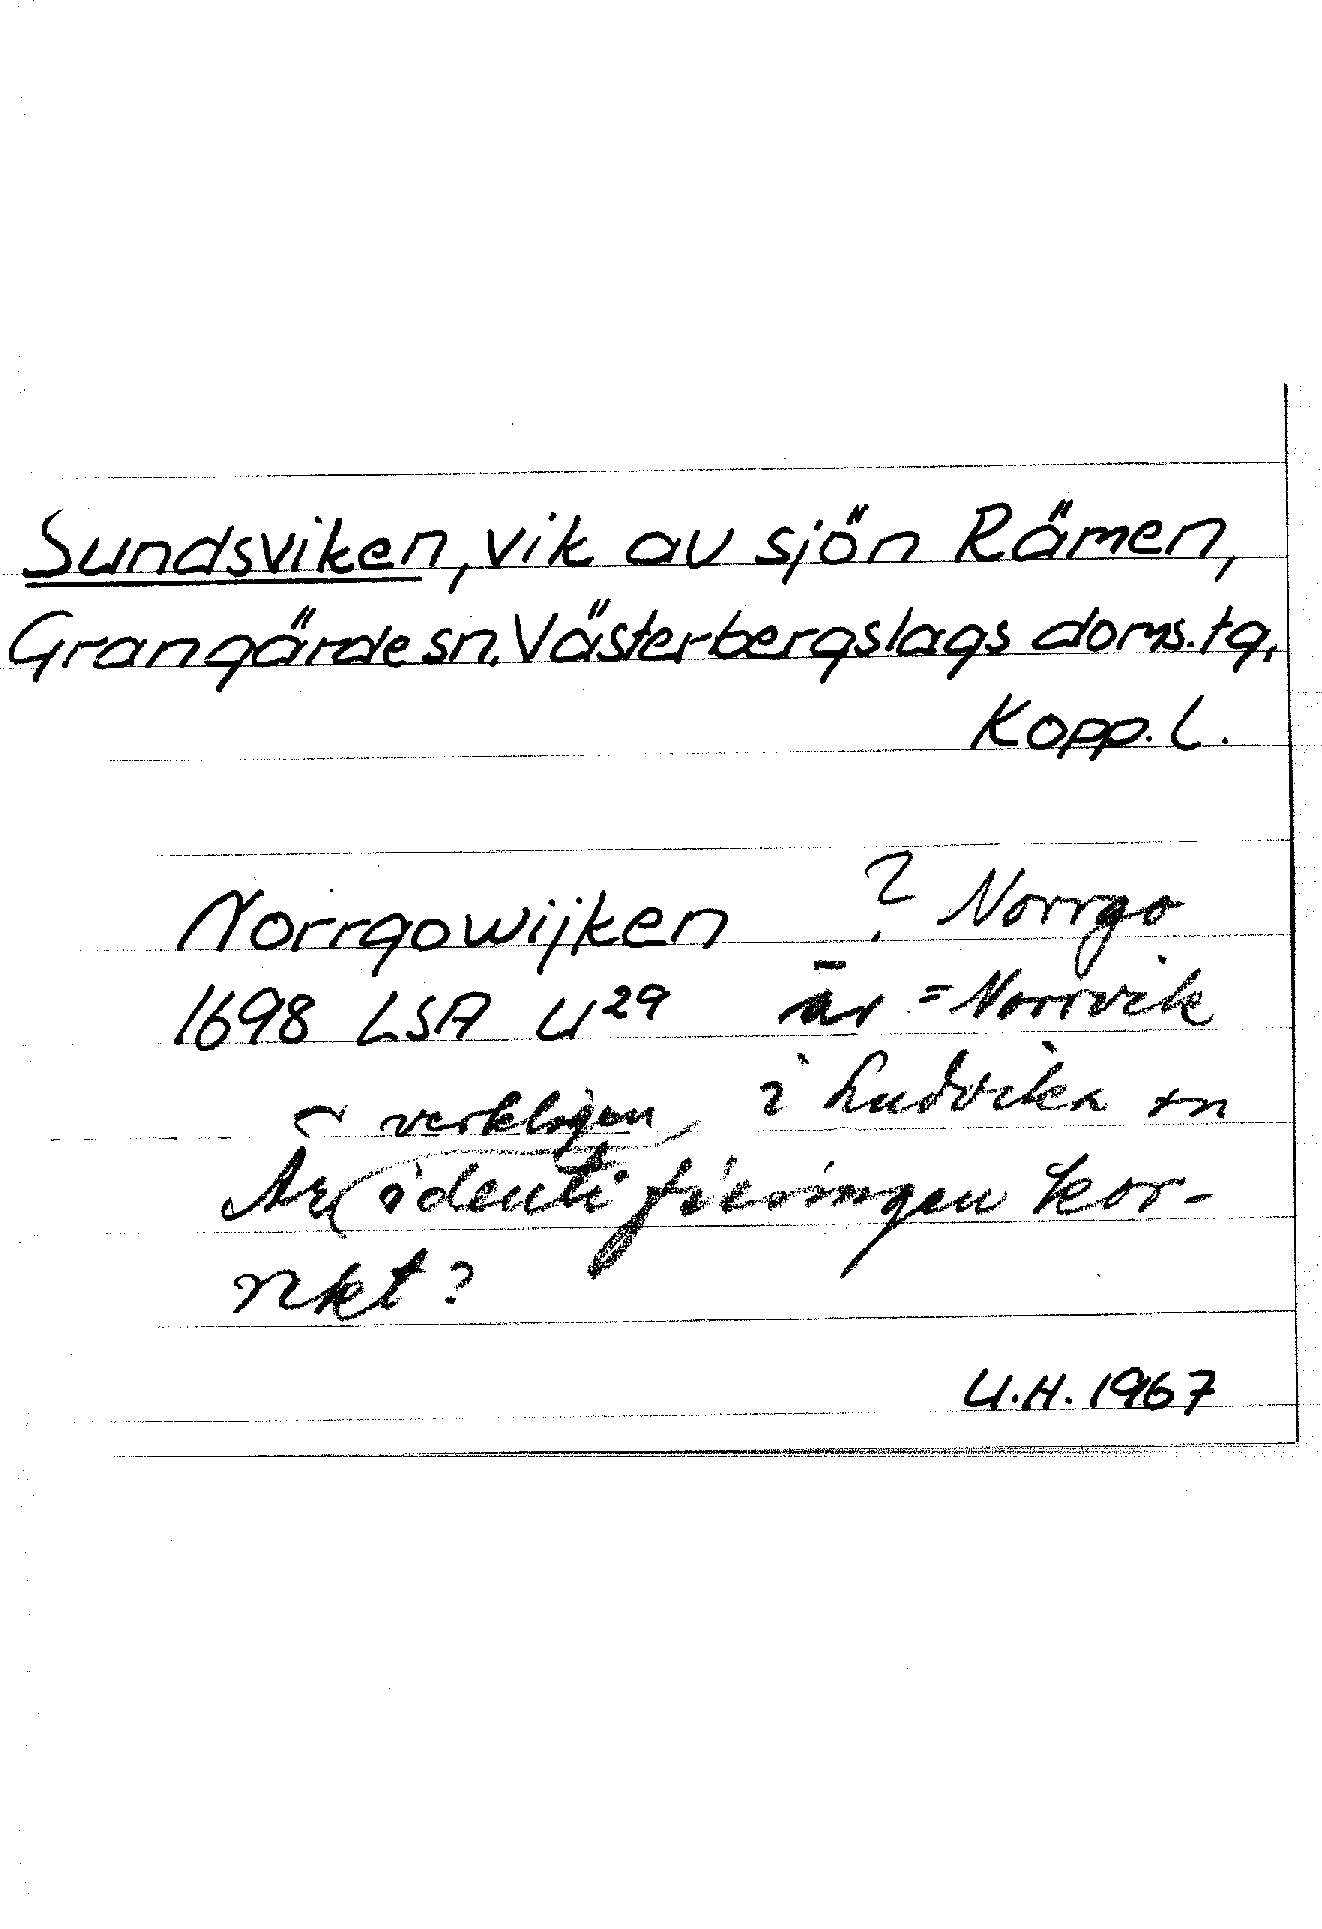 Sundsviken, vik av sjön Rämen,
Grangärde sn. Västerbergslags doms. tg.
Kopp. l.
Norrgowijken ? Norrgo
1698 LSA U29 är = Norrvik
i Ludvika sn
verkligen
Är identifieringen kor-
rekt?
U.H. 1967